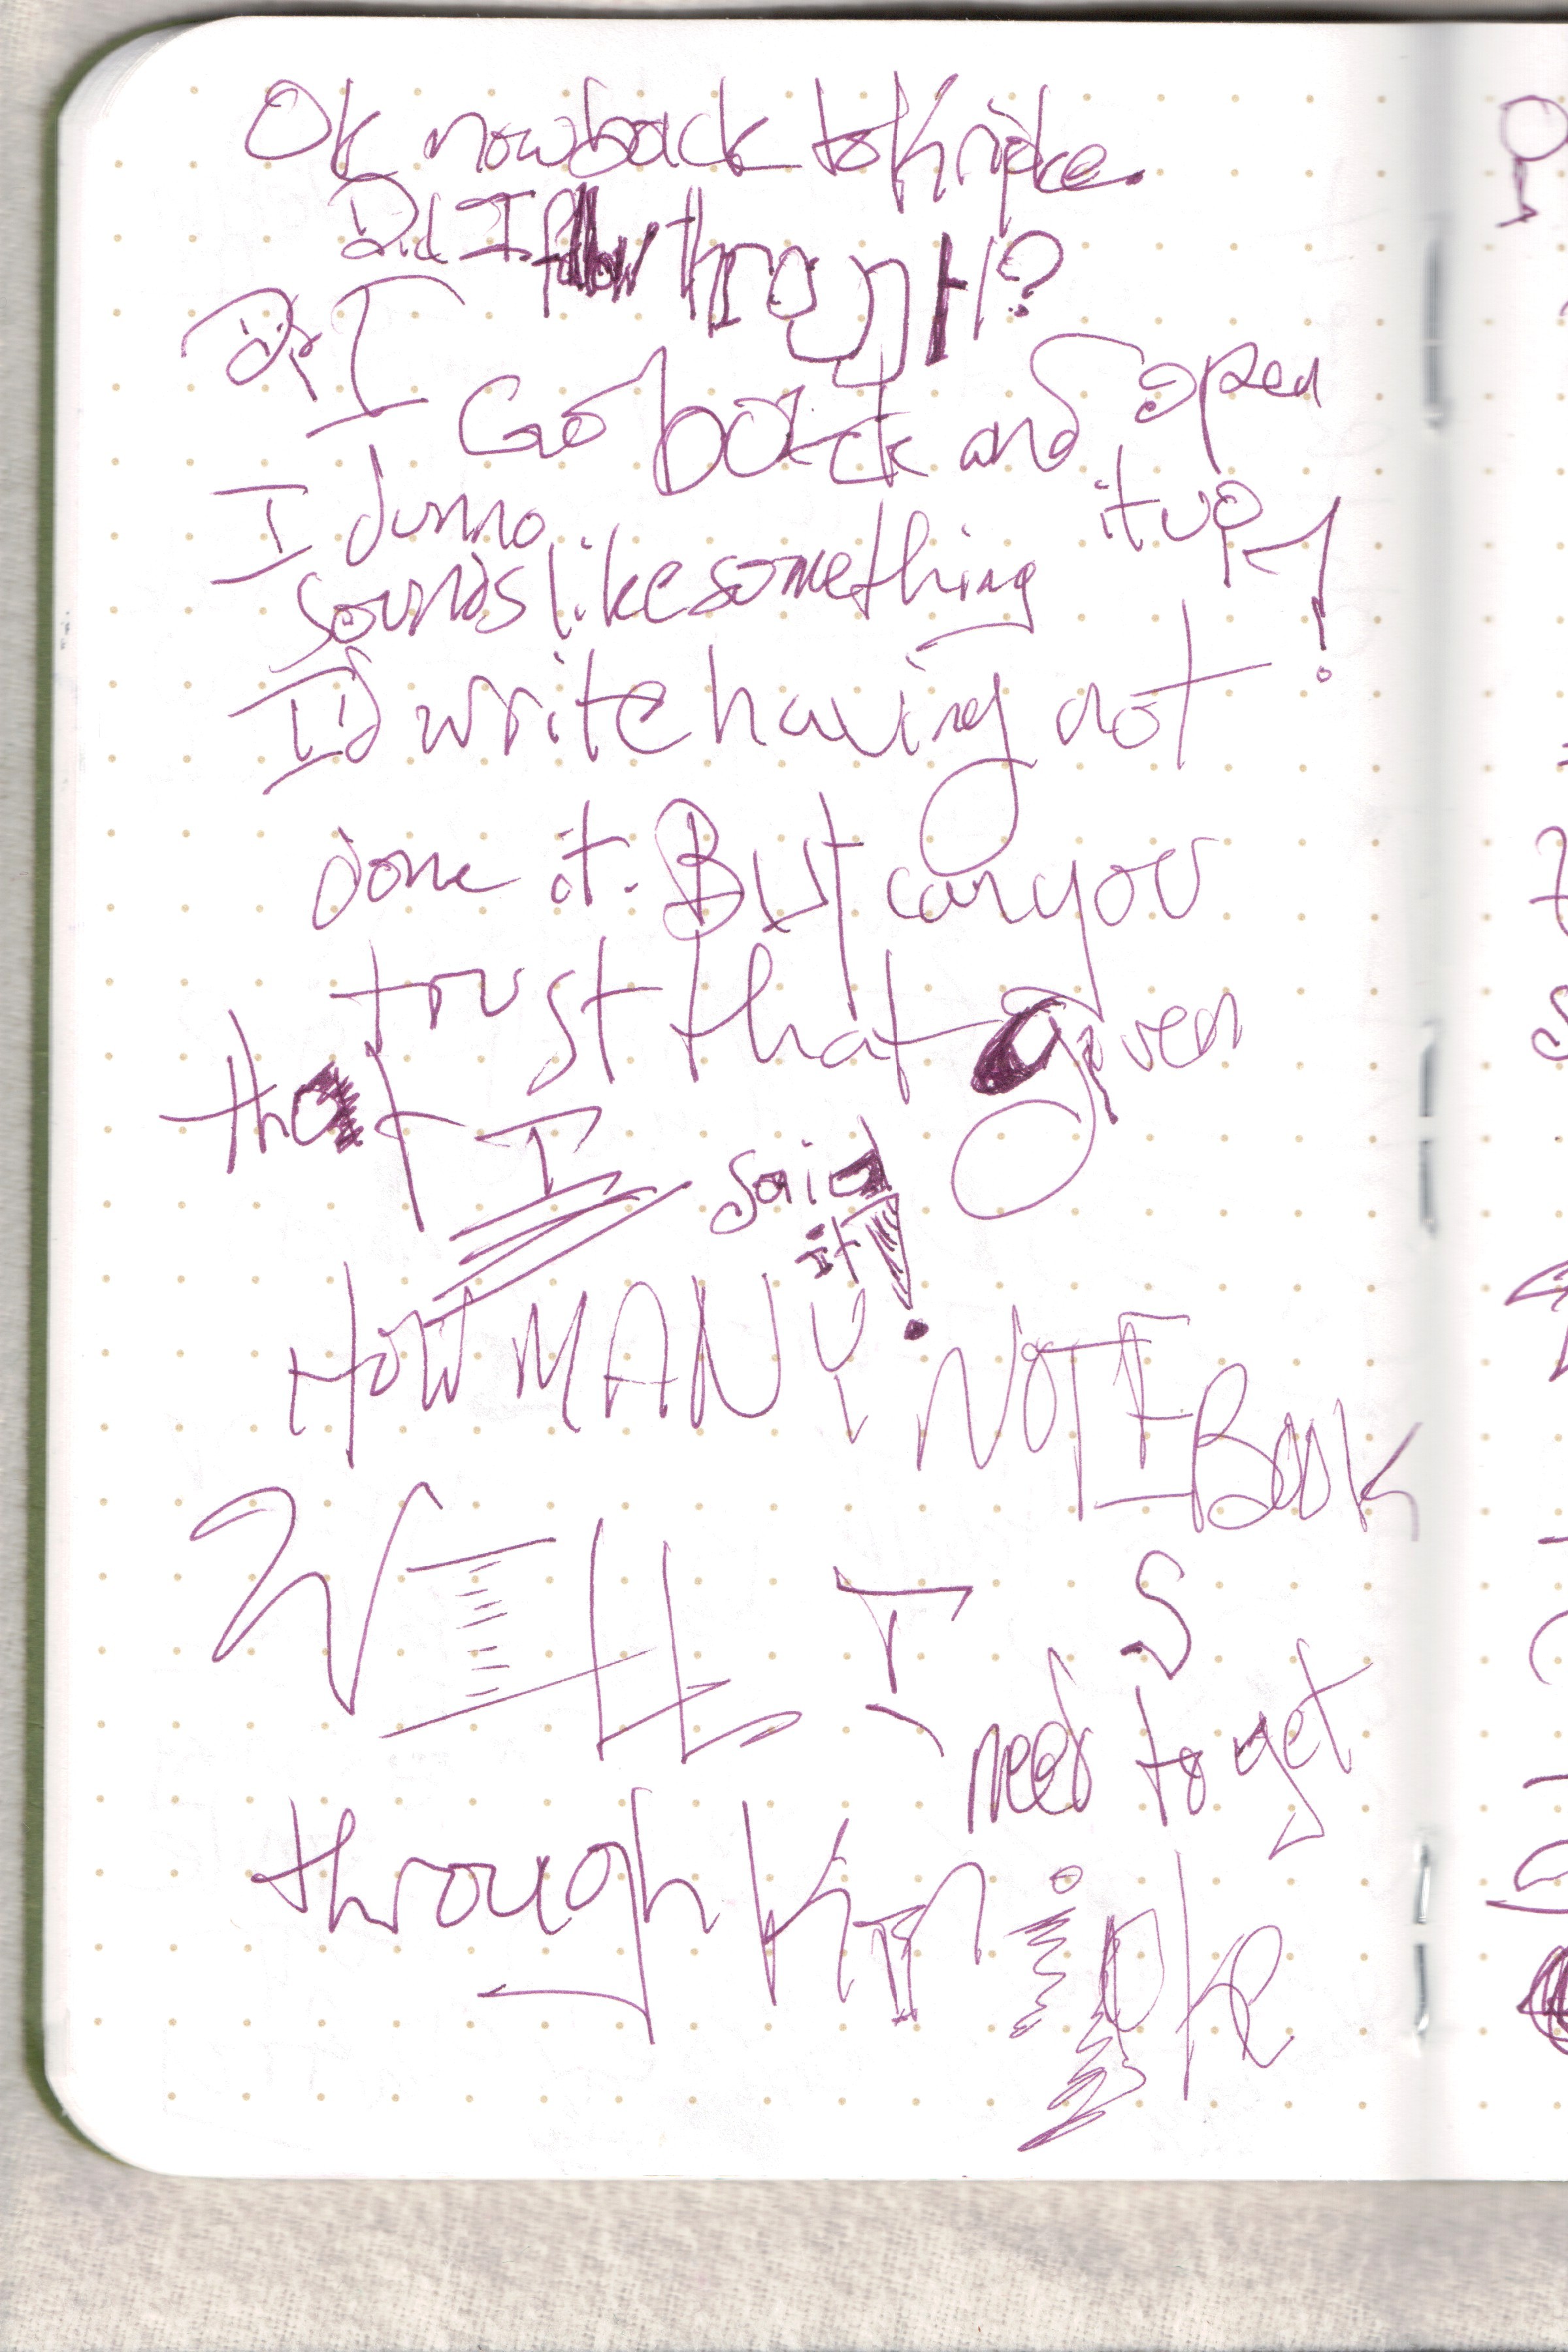 Ok now back to Kripke.
Did I follow through?
Did I
Go back and open
it up!
I dunno
sounds like something
I'd write having not
done it. But can you
trust that given
that I said
it!
HOW MANY NOTEBOOKS
WILL I
need to get
through Kripke